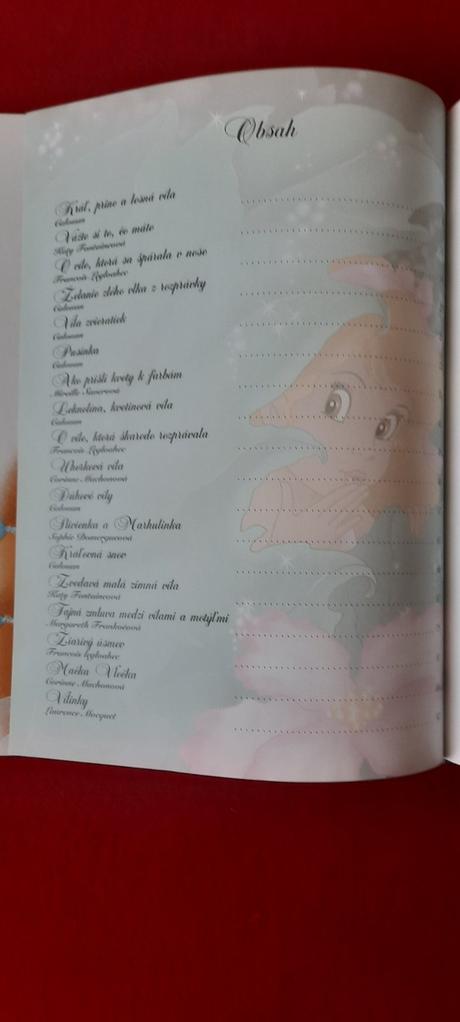 Obsah
Kráľ, princ a lesná víla
Calouan
Vážte si to, čo máte
Katy Fontaineová
O víle, ktorá sa špárala v nose
Francois Lagloahec
Želanie zlého vlka z rozprávky
Calouan
Víla zvieratiek
Calouan
Pusinka
Calouan
Ako prišli kvety k farbám
Mireille Saverová
Leknelína, kvetinová víla
Calouan
O víle, ktorá škaredo rozprávala
Francois Lagloahec
Uhorková víla
Corinne Machonová
Dúhové víly
Calouan
Slivienka a Markulinka
Sophie Domergueová
Kráľovná snov
Calouan
Zvedavá malá zimná víla
Katy Fontaineová
Tajná zmluva medzi vílami a motýľmi
Margareth Frankočová
Žiarivý úsmev
Francois Lagloahec
Mačka Vločka
Corinne Machonová
Vílinky
Laurence Mocquet